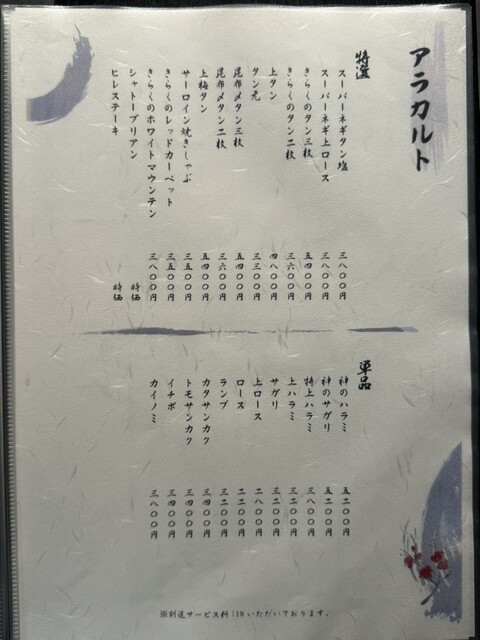 アラカルト
特選
スーパーネギタン塩 三八〇〇円
スーパーネギ上ロース 三八〇〇円
きらくのタン三枚 五四〇〇円
きらくのタン二枚 三六〇〇円
上タン 四八〇〇円
タン元 三三〇〇円
昆布〆タン三枚 五四〇〇円
昆布〆タン二枚 三六〇〇円
上梅タン 五四〇〇円
サーロイン焼きしゃぶ 三五〇〇円
きらくのレッドカーペット 三五〇〇円
きらくのホワイトマウンテン 三八〇〇円
シャトーブリアン 時価
ヒレステーキ 時価
単品
神のハラミ 五二〇〇円
神のサガリ 五二〇〇円
特上ハラミ 三八〇〇円
上ハラミ 三二〇〇円
サガリ 三二〇〇円
上ロース 二八〇〇円
ロース 二二〇〇円
ランプ 三二〇〇円
カタサンカク 三四〇〇円
トモサンカク 三四〇〇円
イチボ 三四〇〇円
カイノミ 三八〇〇円
※別途サービス料いただいております。